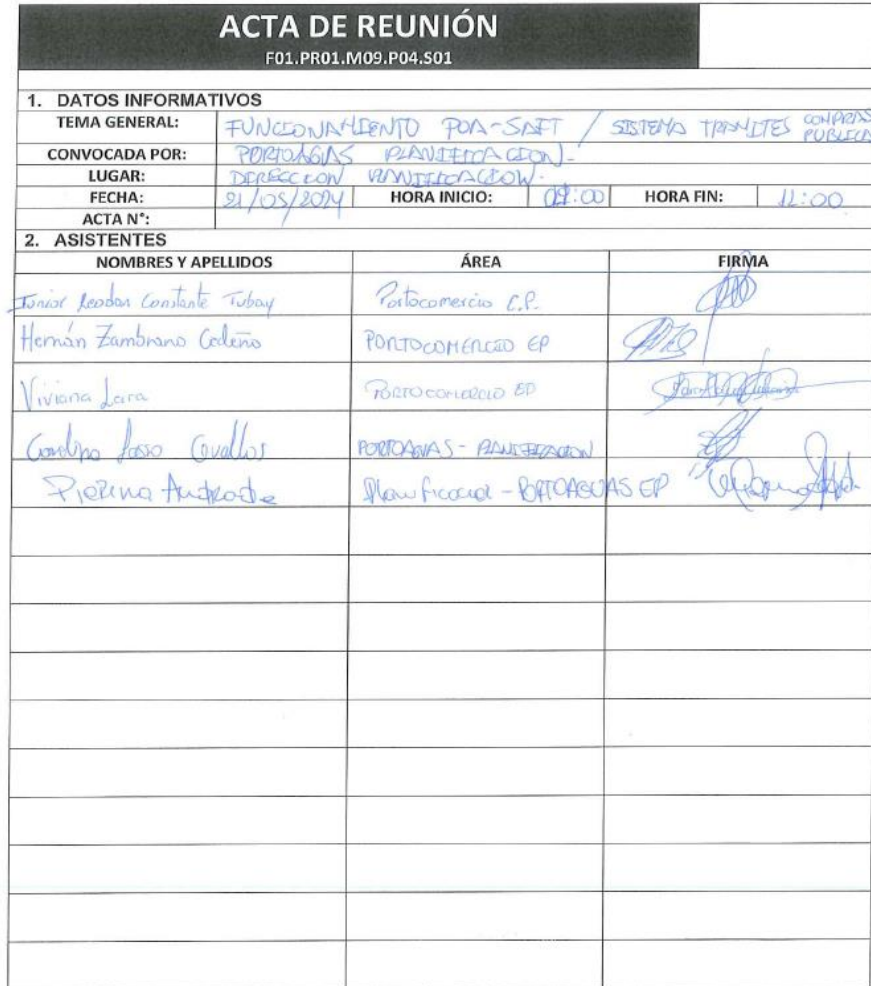 ACTA DE REUNIÓN
F01.PR01.M09.P04.S01
1. DATOS INFORMATIVOS
TEMA GENERAL: FUNCIONAMIENTO POA-SAFT / SISTEMA TRAMITES COMPRAS PUBLICA
CONVOCADA POR: PORTOAGUAS PLANIFICACION.
LUGAR: DIRECCION PLANIFICACION.
FECHA: 21/05/2024 HORA INICIO: 09:00 HORA FIN: 11:00
ACTA N°:
2. ASISTENTES
NOMBRES Y APELLIDOS ÁREA FIRMA
Junior Constante Tubay Portocomercio E.P.
Hernán Zambrano Cedeño PORTOCOMERCIO EP
Viviana Lara PORTOCOMERCIO EP
Lasso Cevallos PORTOAGUAS - PLANIFICACION
Pierina Andrade Planificacion - PORTOAGUAS EP